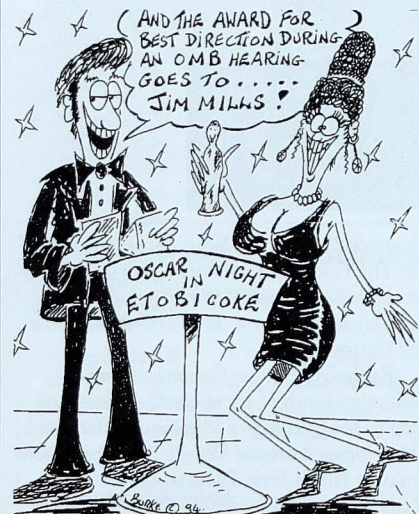 AND THE AWARD FOR
BEST DIRECTION DURING
AN OMB HEARING
GOES TO.....
JIM MILLS!
OSCAR NIGHT
IN
ETOBICOKE
BURKE © 94.